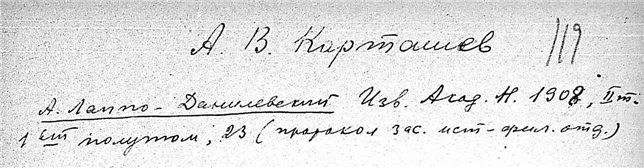 А. В. Карташев 119
А. Лаппо-Данилевский Изв. Акад. Н. 1908, II т.
1ый полутом, 23 (протокол зас. ист-фил. отд.)